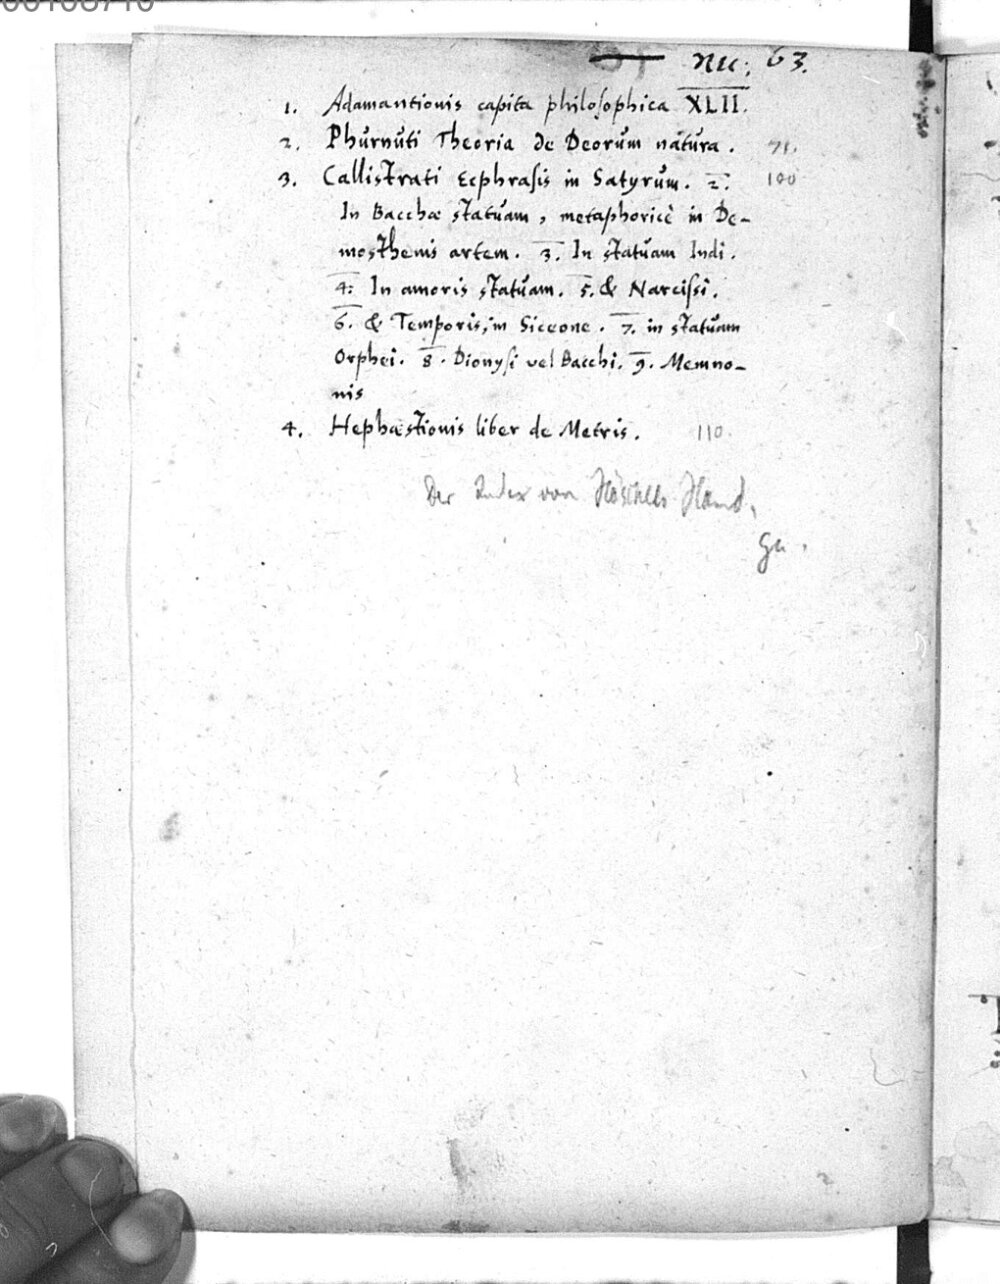 Nu: 63.
1. Adamantionis capita philosophica XLII.
2. Phŭrnŭti Theoria de Deorŭm natŭra. 71.
3. Callistrati Ecphrasis in Satyrŭm. 2. 100
In Bacchæ statŭam, metaphoricè in De-
mosthenis artem. 3. In statŭam Indi.
4. In amoris statŭam. 5. & Narcissi.
6. & Temporis, in Siccone. 7. in statŭam
Orphei. 8. Dionysi vel Bacchi. 9. Memno-
nis
4. Hephæstionis liber de Metris. 110.
Der Index von Höschels Hand.